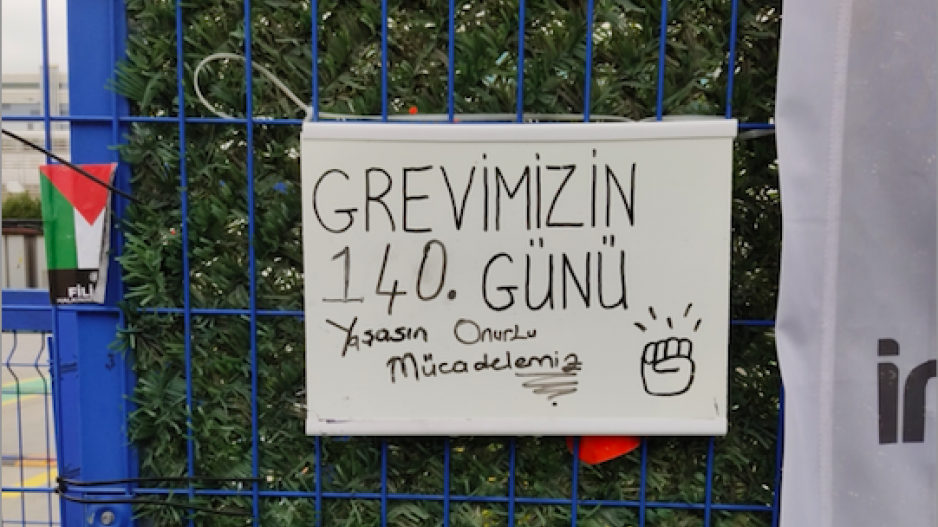 GREVİMİZİN
140. GÜNÜ
Yaşasın Onurlu
Mücadelemiz
FİLİ